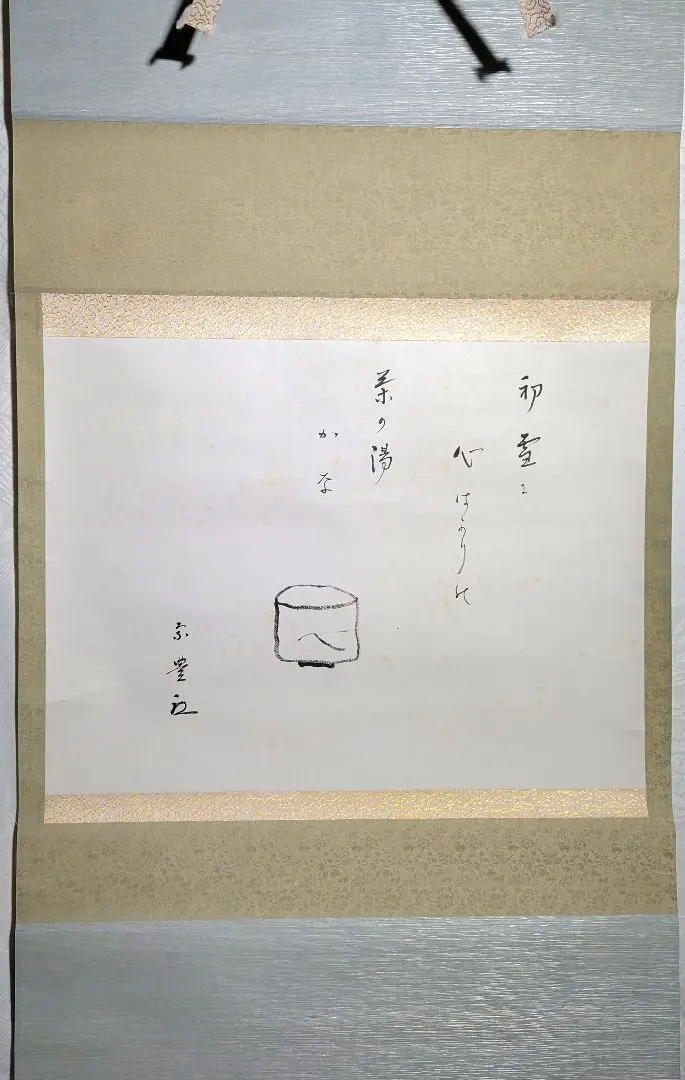 初雪に
心はかりの
茶の湯
かな
宗豊